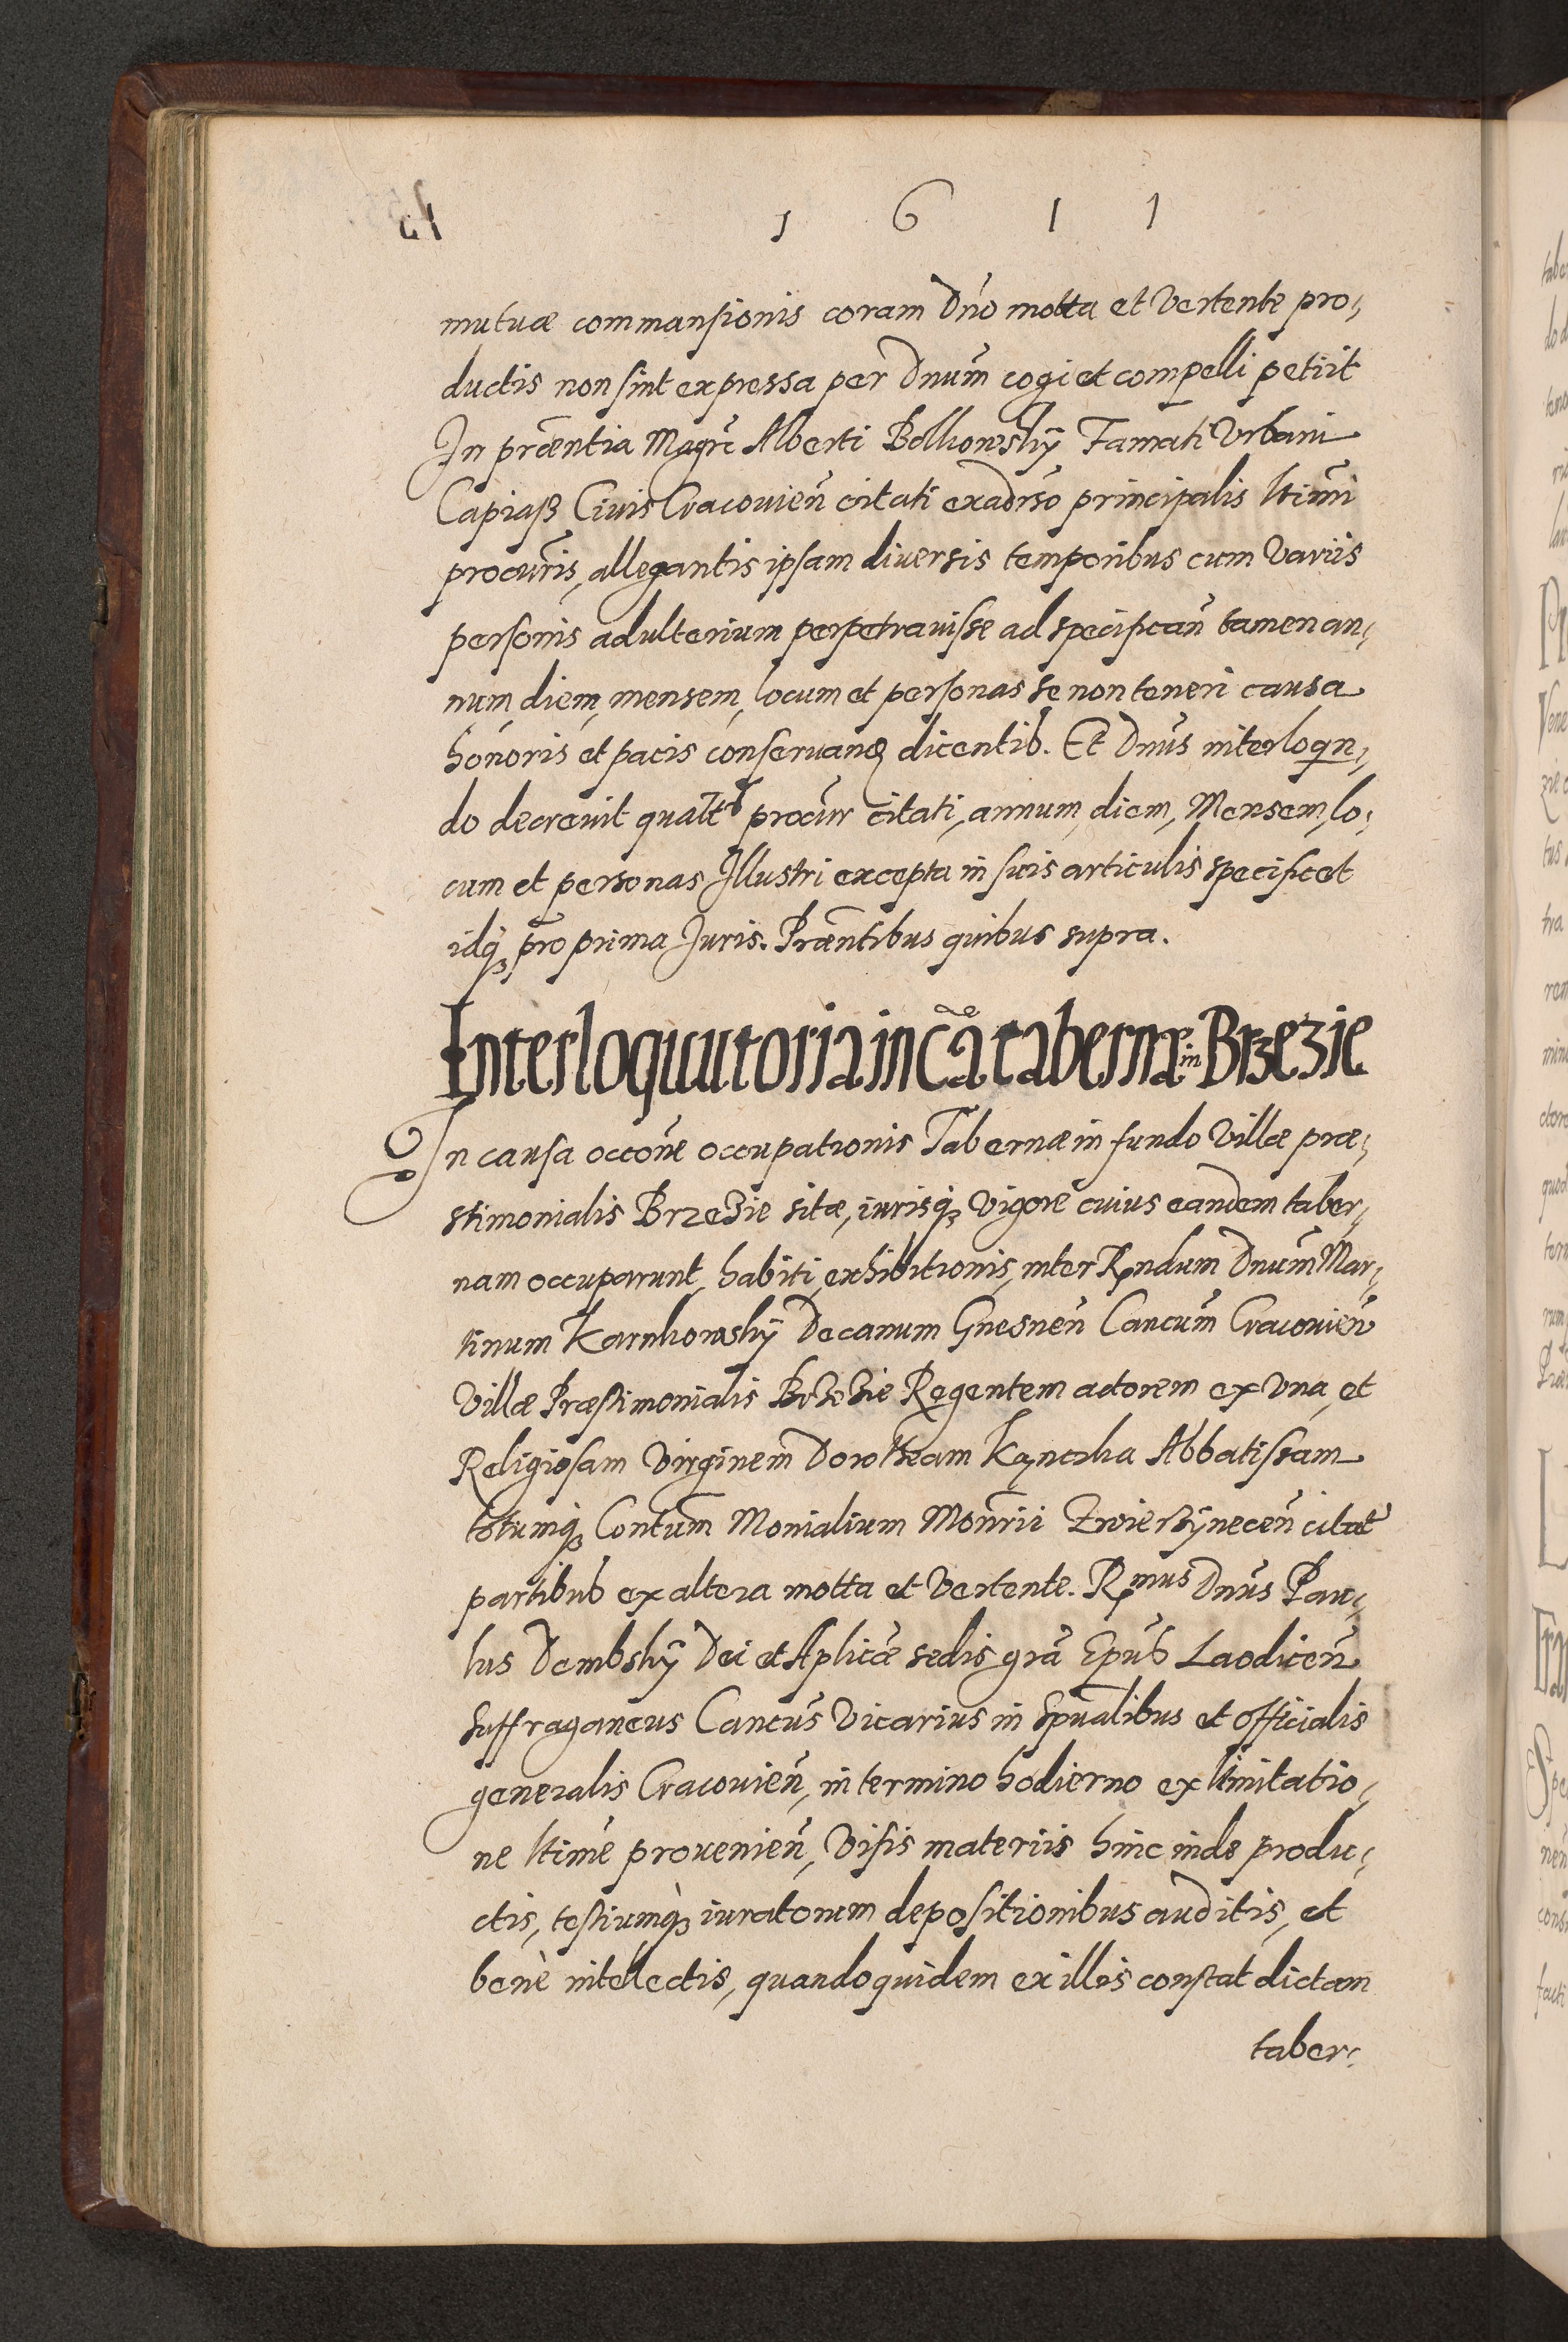 1 6 1 1
mutuæ commansionis coram Dño motta et Vertente pro,
ductis non sint expressa per Dnum̃ cogi et compelli petiit
In præntia Magrĩ Alberti Bolkowskÿ Famati Vrbani
Capiaß Ciuis Cracouieñ citati ex aduršo principalis ltimĩ
procuris̃, allegantis ipsam diuersis temporibus cum Variis
personis adulterium perpetrauisse ad specificañ tamen an,
num, diem, mensem, locum et personas se non teneri causa
honoris et pacis conseruanđ dicentib. Et Dnus̃ interloqn,
do decreuit qualt̃r procur̃ citati, annum, diem, Mensem, lo,
cum et personas Illustri excepta in suis articulis specificet
idq̨ pro prima Juris. Præñtibus quibus supra.
Interloquutoria in cãa tabernæ in Brzezie
In causa occoñe occupationis Tabernæ in fundo Villæ præ,
stimonialis Brzezie sitæ, iurisq̨ Vigore cuius eandem taber,
nam occuparunt, habiti, exhibitionis, inter Rndum Dnum̃ Mar,
tinum Karnkowskÿ Decanum Gnesneñ Cancum̃ Cracouieñ
Villæ Præstimonialis Brzezie Regentem actorem ex Vna, et
Religiosam Virginem Dorotheam Kątczka Abbatissam
totumq̨ Contum̃ Monialium Monrĩi Zwierzÿneceñ citat̃
partibus ex altera motta et Vertente. Rmus Dnus̃ Pau,
lus Dembskÿ Dei et Aplicæ̃ sedis grã Epus̃ Laodiceñ
Suffraganeus Cancus̃ Vicarius in Spualibus̃ et officialis
generalis Cracouieñ, in termino hodierno ex limitatio,
ne ltimẽ prouenieñ, Visis materiis hinc inde produ,
ctis, testiumq̨ iuratorum depositionibus auditis, et
benè intellectis, quandoquidem ex illis constat dictam
taber,